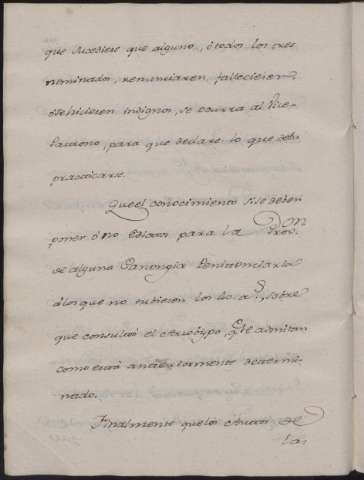 que sucediere que alguno, ó todos los tres
nominados, renunciaren, fallecieren,
ó se hicieren indignos, se ocurra al Vice-
Patrono, para que declare lo que deba
practicarse.
Que el conocimiento si se deben
poner ó no Edictos para la Prov.on
de alguna Canongia Penitenciaria
á los que no tubieren los 40 a.s, sobre
que consultó el Arzobpo, q.e se admitan
como está anteriormente determi-
nado.
Finalmente que los Autos de
la